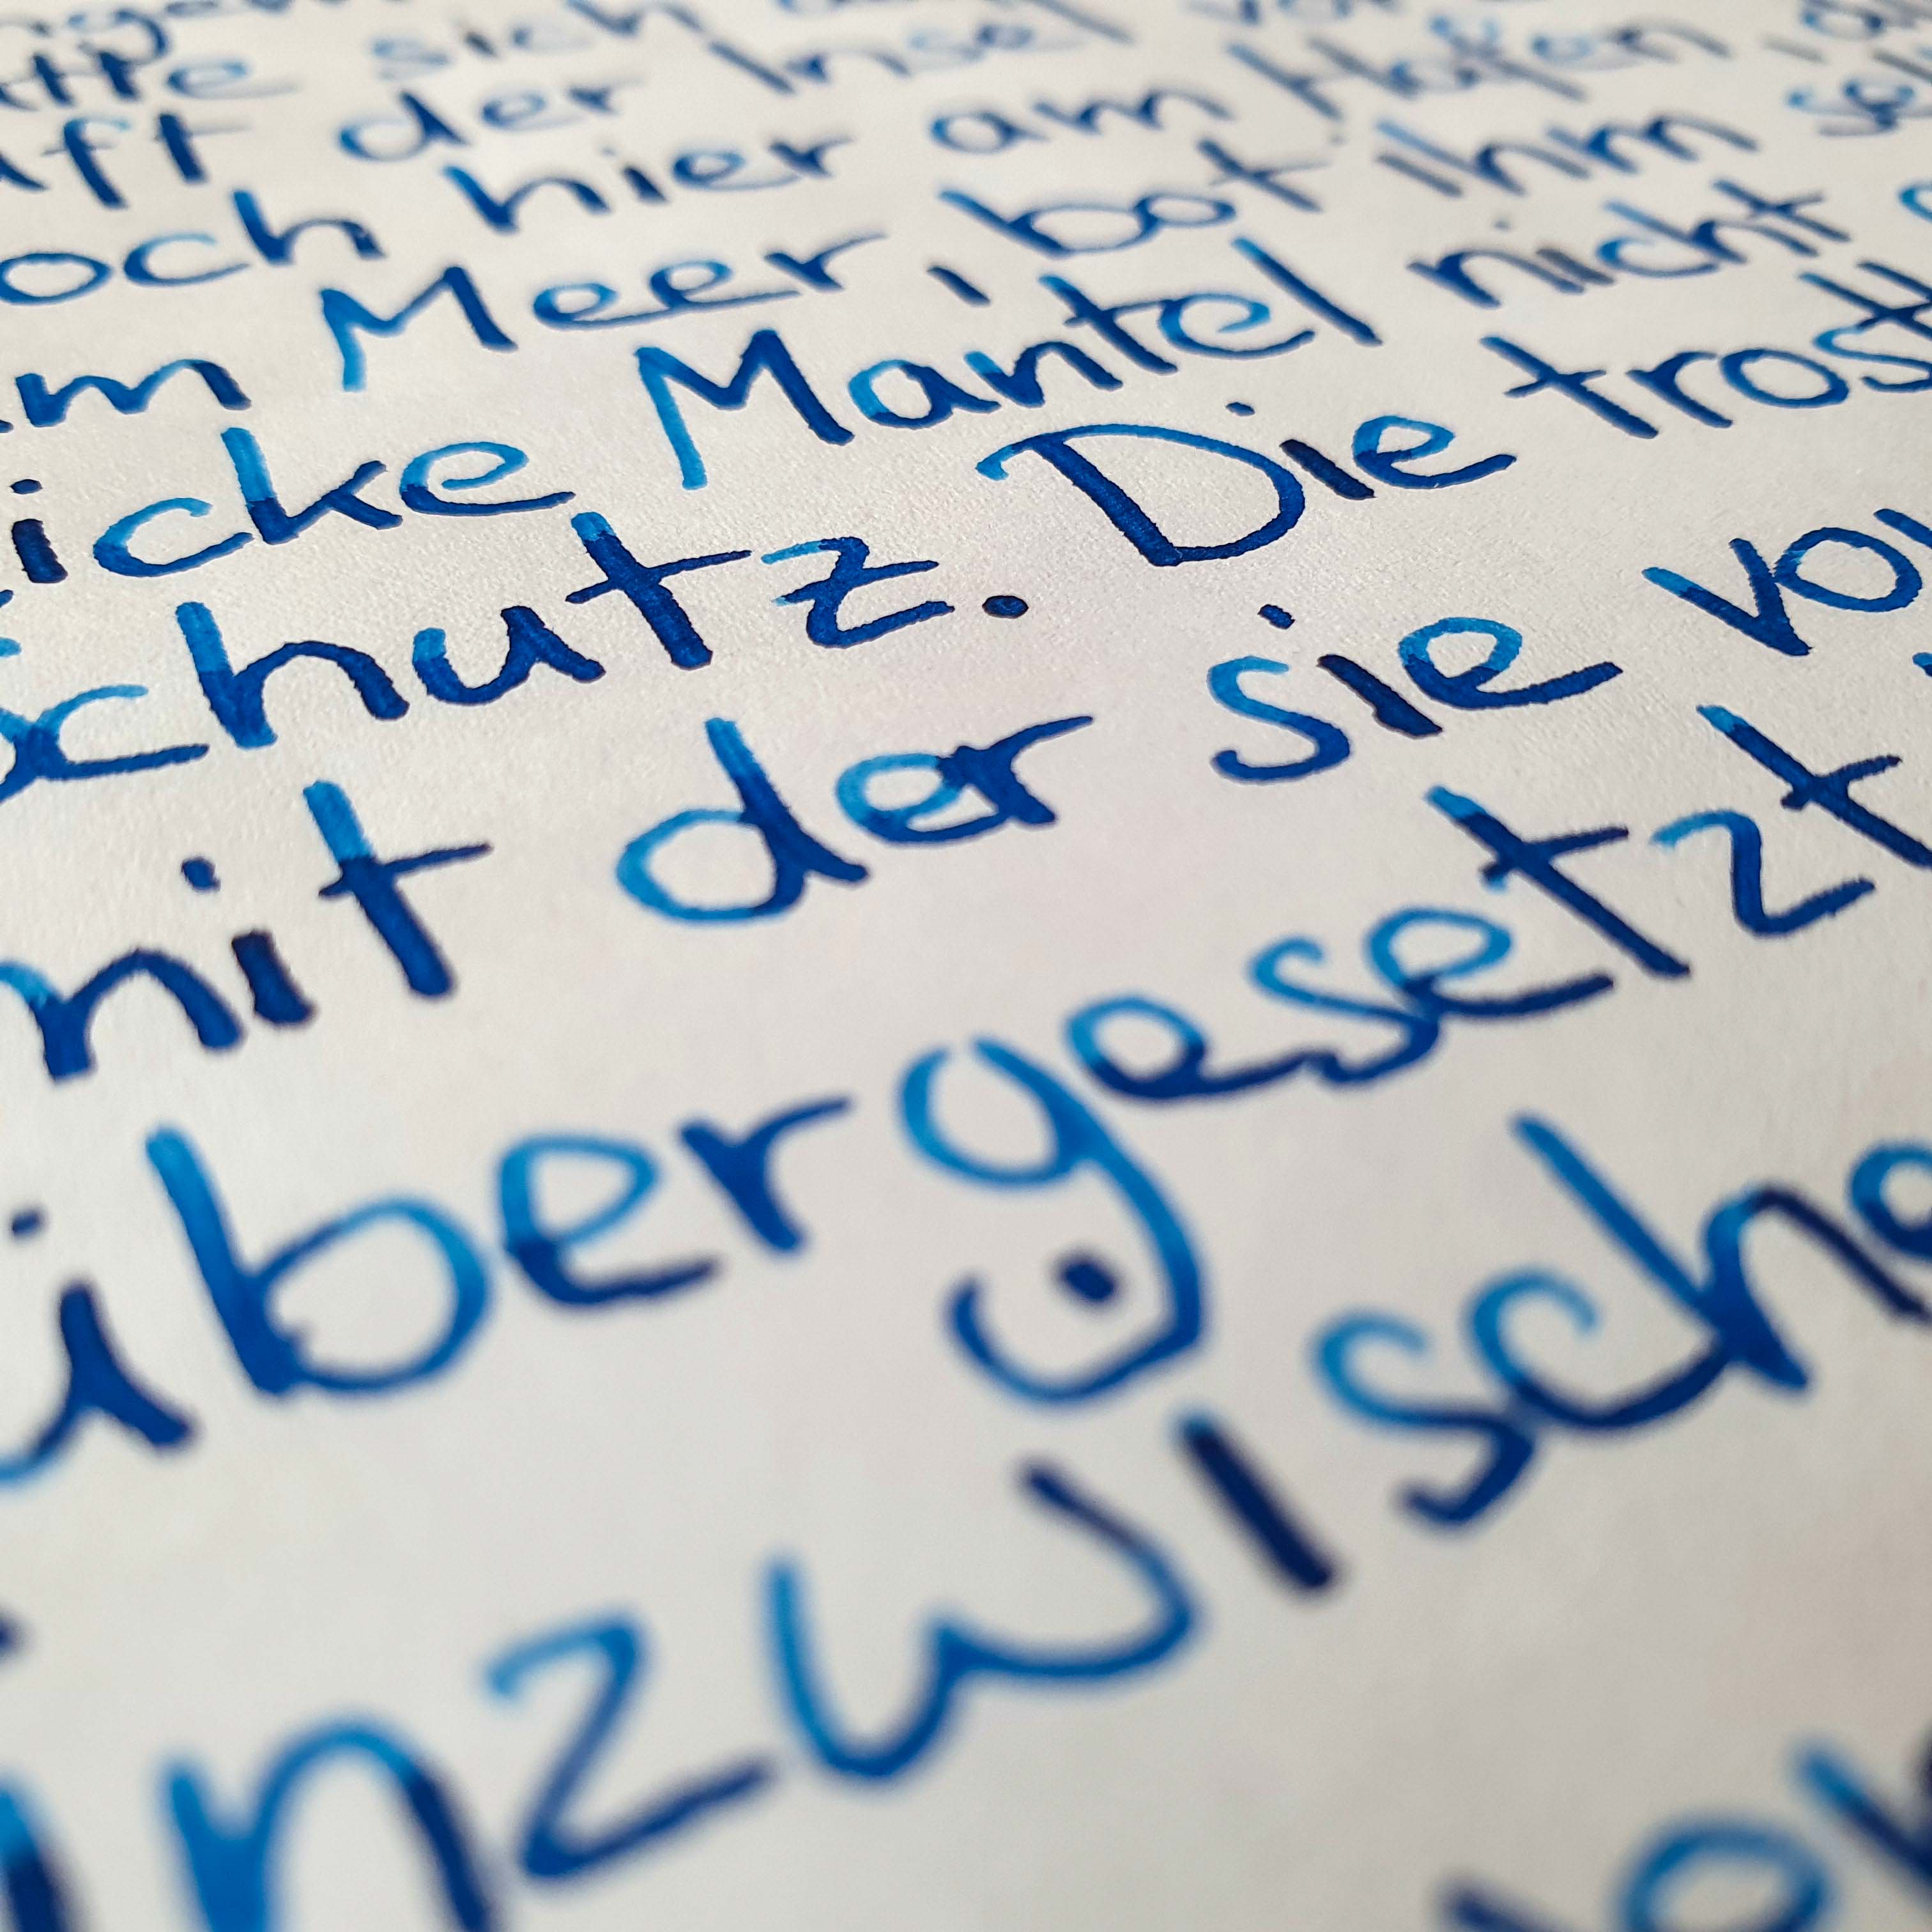 sich
der Insel
och hier am Hafen
m Meer, bot ihm
icke Mantel nicht
chutz. Die trost
mit der sie vor
übergesetzt
inzwische